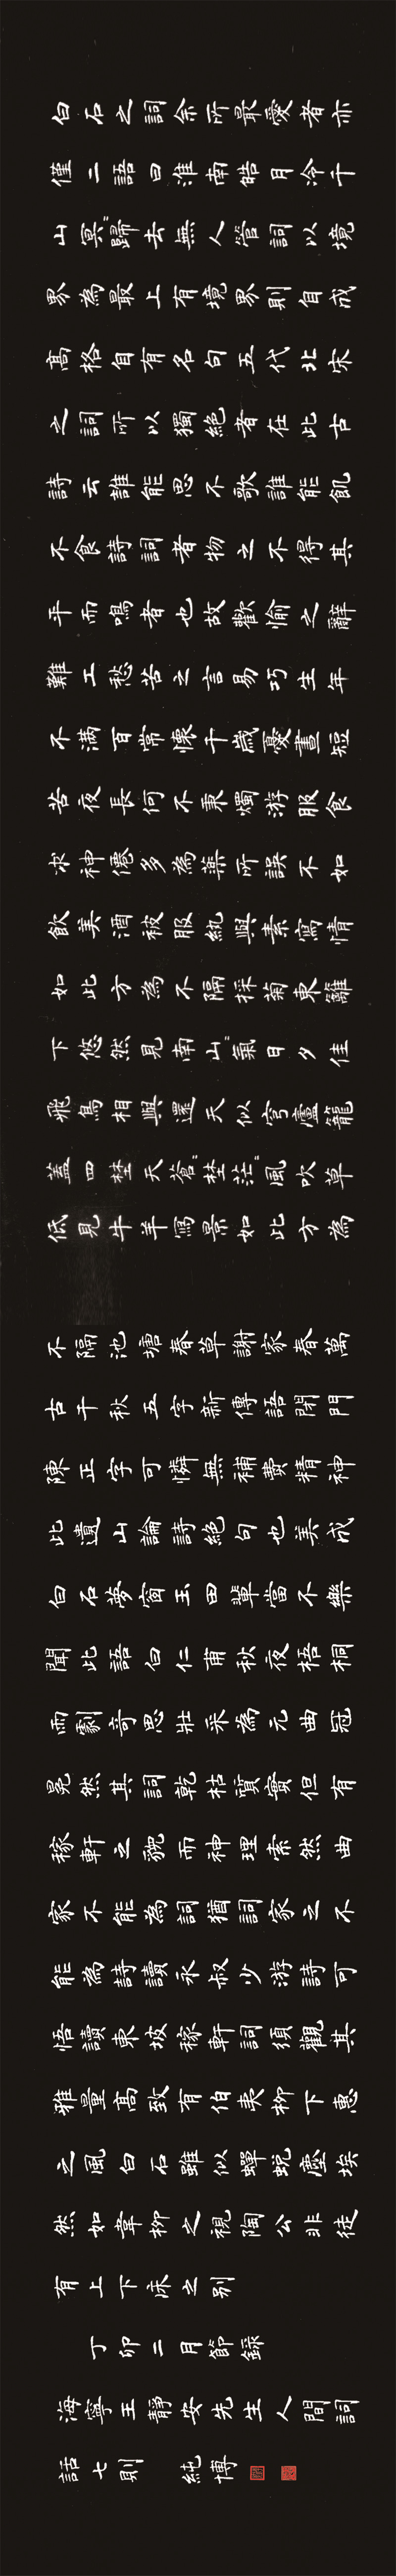 白石之詞余所最愛者亦
僅二語曰淮南皓月冷千
山冥〻歸去無人管詞以境
界為最上有境界則自成
高格自有名句五代北宋
之詞所以獨絕者在此古
詩云誰能思不歌誰能飢
不食詩詞者物之不得其
平而鳴者也故歡愉之辭
難工愁苦之言易巧生年
不滿百常懷千歲憂晝短
苦夜長何不秉燭游服食
求神僊多為藥所誤不如
飲美酒被服紈與素寫情
如此方為不隔採菊東籬
下悠然見南山〻氣日夕佳
飛鳥相與還天似穹廬籠
蓋四埜天蒼〻埜茫〻風吹草
低見牛羊寫景如此方為
不隔池塘春草謝家春萬
古千秋五字新傳語閉門
陳正字可憐無補費精神
此遺山論詩絕句也美成
白石夢窗玉田輩當不樂
聞此語白仁甫秋夜梧桐
雨劇奇思壯采為元曲冠
冕然其詞乾枯質實但有
稼軒之貌而神理索然曲
家不能為詞猶詞家之不
能為詩讀永叔少游詩可
悟讀東坡稼軒詞須觀其
雅量高致有伯夷柳下惠
之風白石雖似蟬蛻塵埃
然如韋柳之視陶公非徒
有上下床之別
丁卯二月節錄
海寧王靜安先生人間詞
話七則 純博